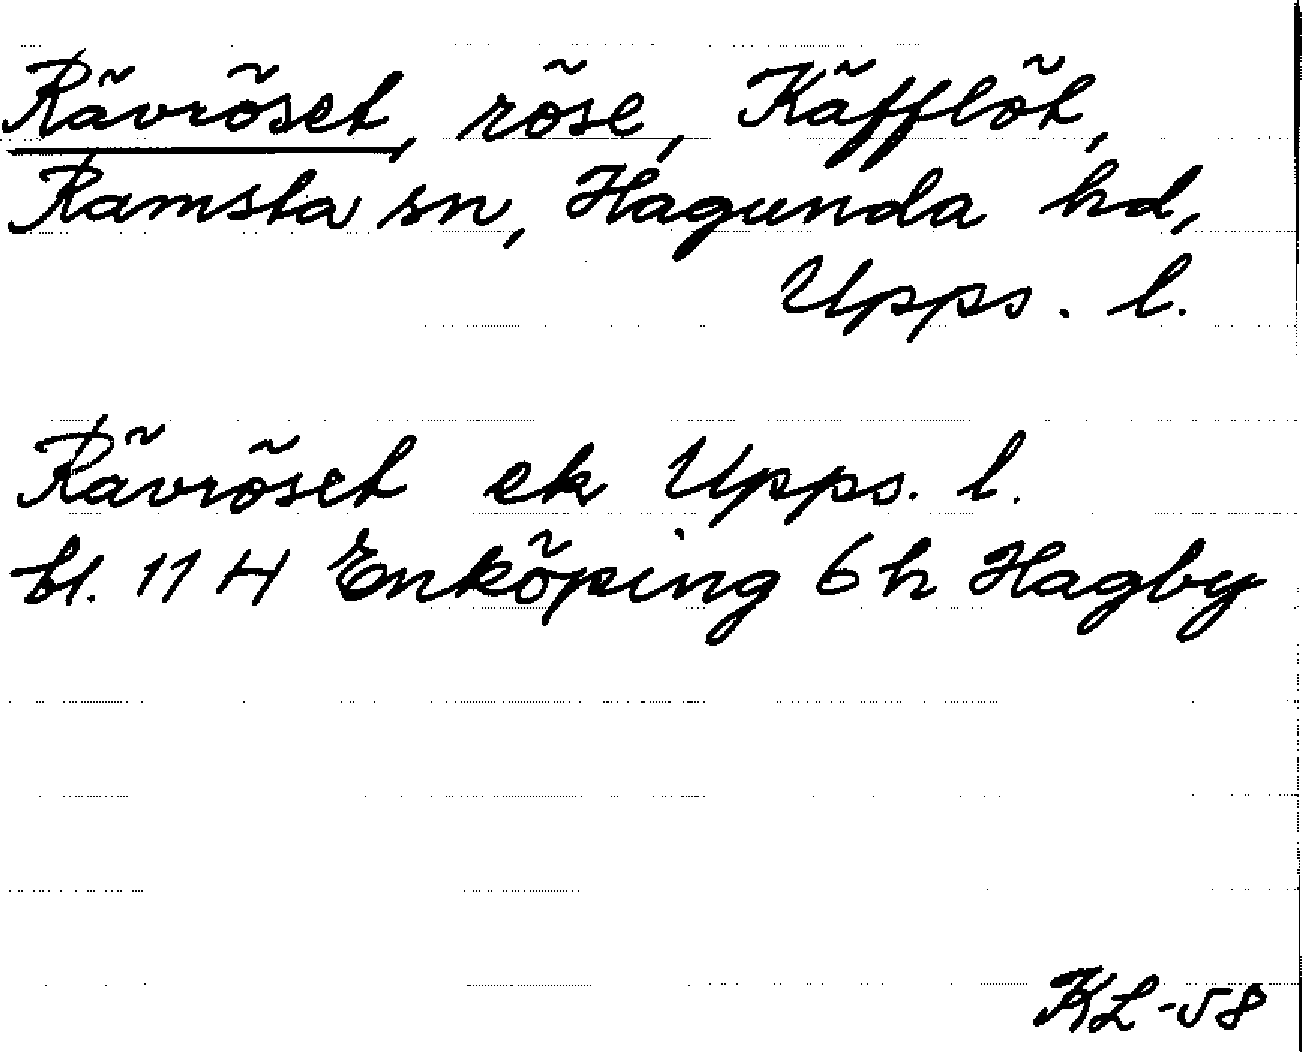 Rävröset, röse, Käfflöt,
Ramsta sn, Hagunda hd,
Upps. l.
Rävröset ek Upps. l.
bl. 11 H Enköping 6 h Hagby
KL-58